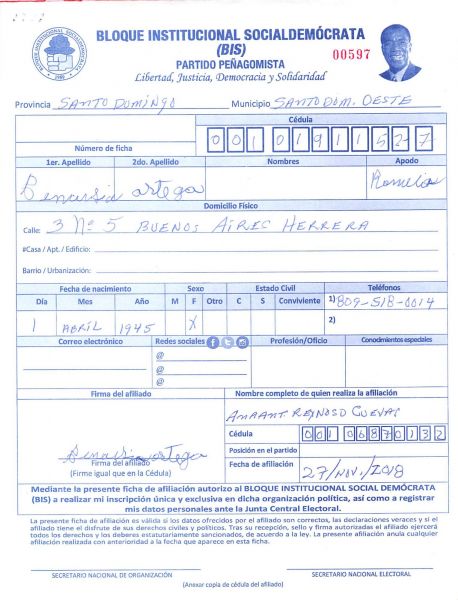 BLOQUE INSTITUCIONAL SOCIALDEMÓCRATA
(BIS)
00597
PARTIDO PEÑAGOMISTA
Libertad, Justicia, Democracia y Solidaridad
Provincia SANTO DOMINGO Municipio SANTO DOM. OESTE
Cédula
Número de ficha 0 0 1 0 1 9 1 1 5 2 7
1er. Apellido 2do. Apellido Nombres Apodo
ortega
Domicilio Físico
Calle: 3 Nº 5 BUENOS AIRES HERRERA
#Casa / Apt. / Edificio:
Barrio / Urbanización:
Fecha de nacimiento Sexo Estado Civil Teléfonos
Día Mes Año M F Otro C S Conviviente 1) 809-518-0014
1 ABRIL 1945 X 2)
Correo electrónico Redes sociales Profesión/Oficio Conodmientos especiales
@
@
@
Firma del afiliado Nombre completo de quien realiza la afiliación
REYNOSO CUEVAS
Cédula 0 0 1 0 6 8 7 0 1 3 2
ortega
Posición en el partido
Firma del afiliado
(Firme igual que en la Cédula)
Fecha de afiliación 27/NOV./2018
Mediante la presente ficha de afiliación autorizo al BLOQUE INSTITUCIONAL SOCIAL DEMÓCRATA
(BIS) a realizar mi inscripción única y exclusiva en dicha organización política, así como a registrar
mis datos personales ante la Junta Central Electoral.
La presente ficha de afiliación es válida si los datos ofrecidos por el afiliado son correctos, las declaraciones veraces y si el
afiliado tiene el disfrute de sus derechos civiles y políticos. Tras su recepción, sello y firma autorizadas el afiliado ejercerá
todos los derechos y los deberes estatutariamente sancionados, de acuerdo a la ley. La presente afiliación anula cualquier
afiliación realizada con anterioridad a la fecha que aparece en esta ficha.
SECRETARIO NACIONAL DE ORGANIZACIÓN SECRETARIO NACIONAL ELECTORAL
(Anexar copia de cédula del afiliado)